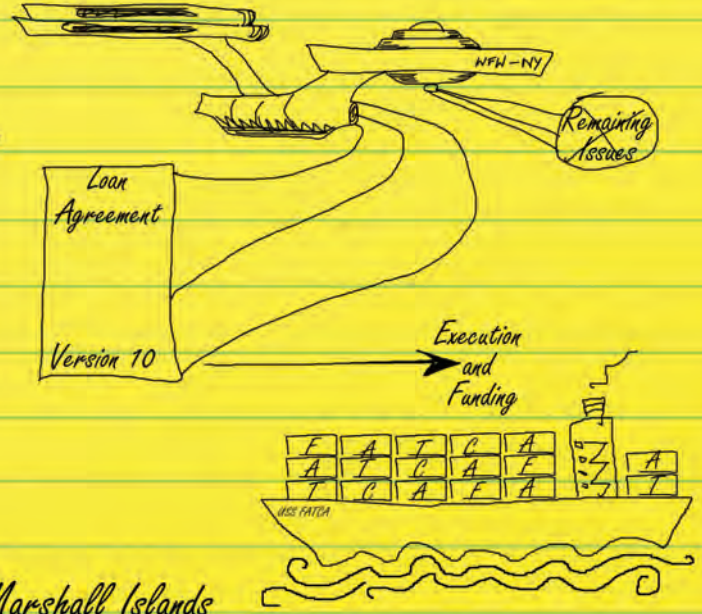 WFW-NY
Remaining
Issues
Loan
Agreement
Version 10
Execution
and
Funding
F A T C A
A T C A F A
T C A F A T
USS FATCA
Marshall Islands